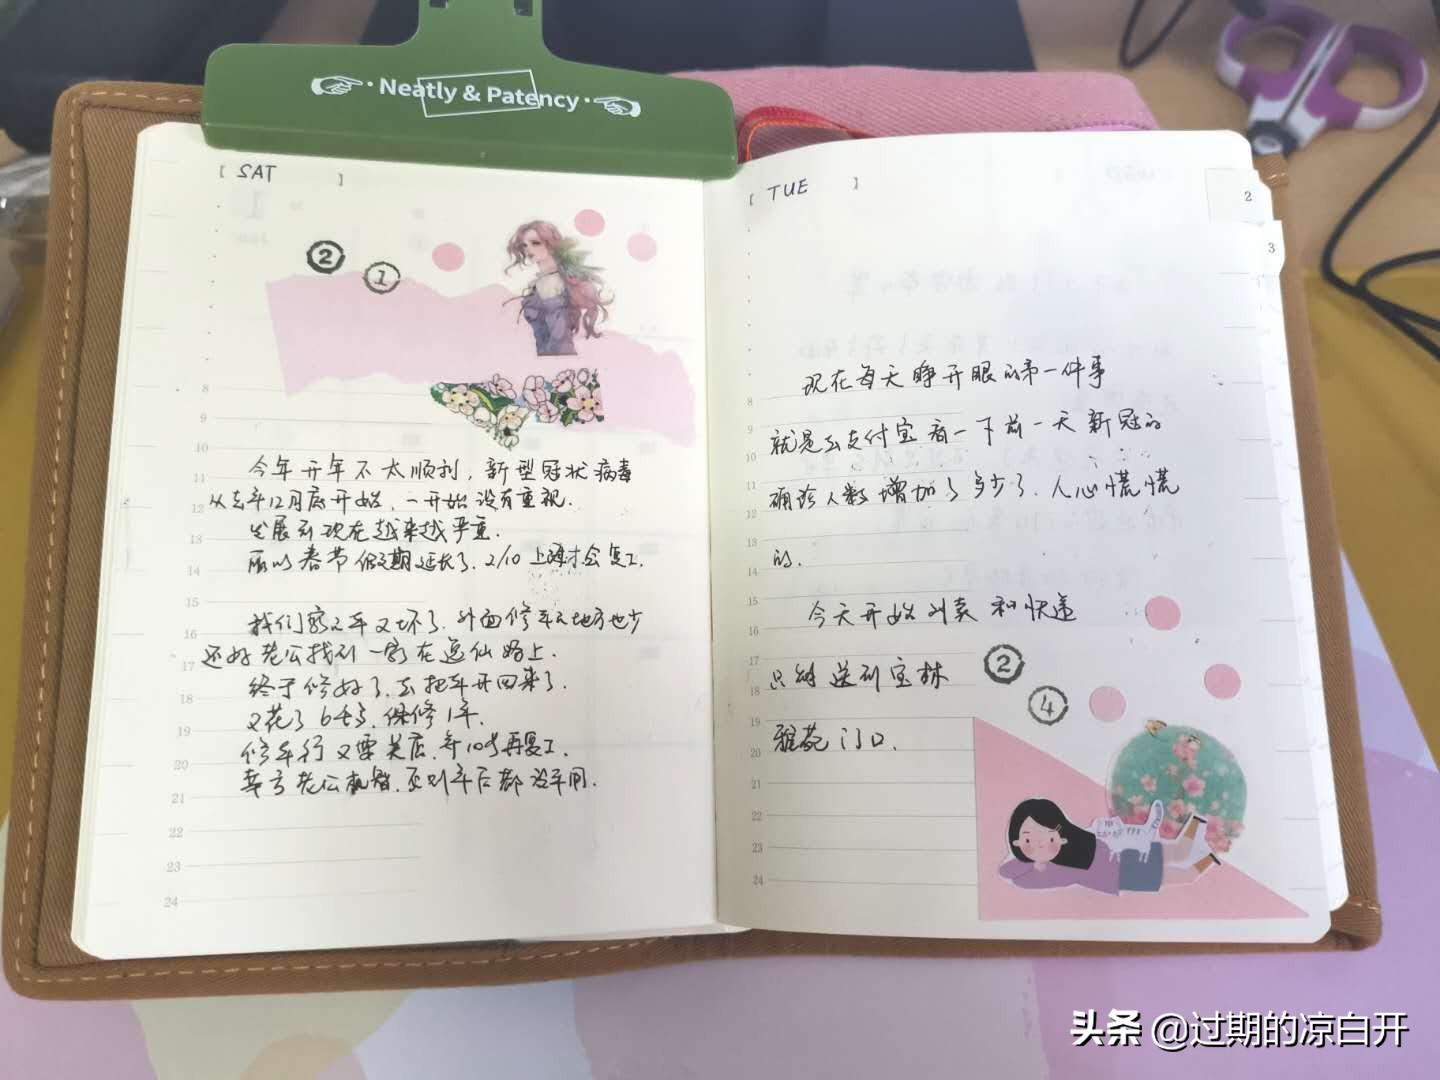 Neatly & Patency
[ SAT ]
②
①
8
9
10
11
12
13
14
15
16
17
18
19
20
21
22
23
24
今年开年不太顺利，新型冠状病毒
从去年12月底开始，一开始没有重视.
发展到现在越来越严重.
所以春节假期延长了. 2/10 上海才会复工.
我们家的车又坏了. 外面修车的地方也少
还好老公找到一家在逸仙路上.
终于修好了. 去把车开回来了.
又花了6千多. 保修1年.
修车行又要关店. 等10号再复工.
幸亏老公机智. 否则年后都没车用.
[ TUE ]
2
3
8
9
10
11
12
13
14
15
16
17
18
19
20
21
22
23
24
现在每天睁开眼的第一件事
就是去支付宝看一下前一天新冠的
确诊人数增加了多少了. 人心慌慌
的.
今天开始外卖和快递
只能送到宝林
雅苑门口.
②
④
头条 @过期的凉白开